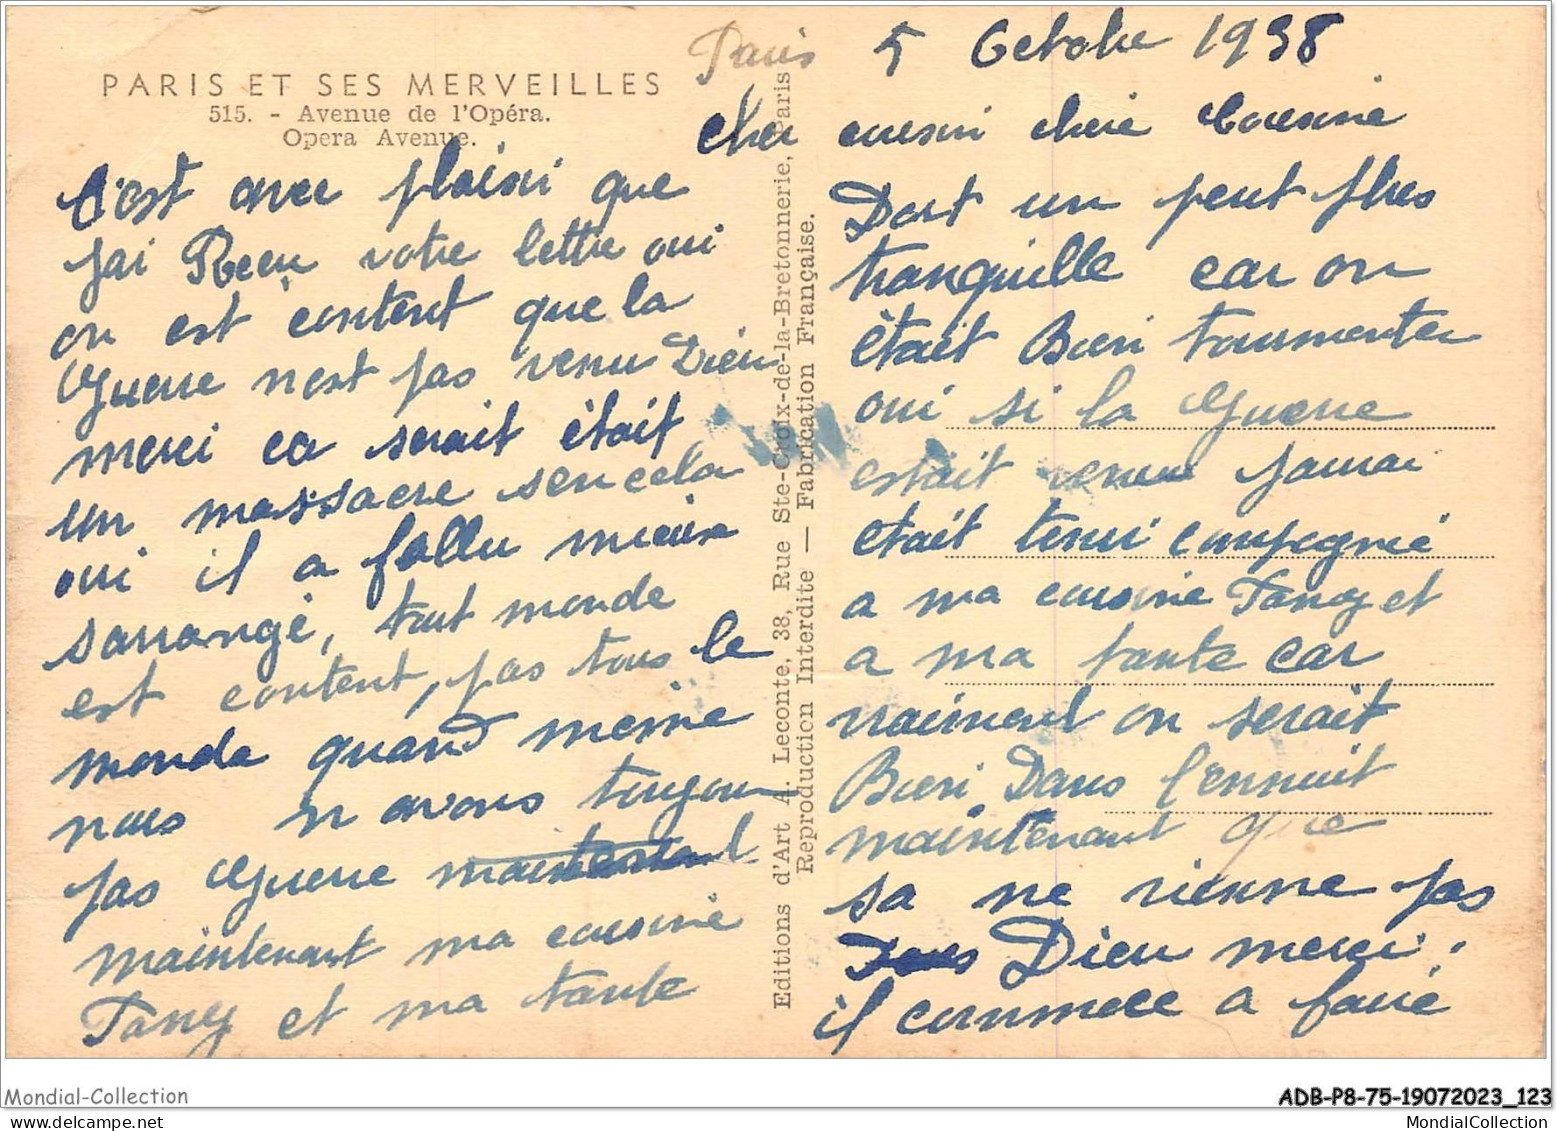 PARIS ET SES MERVEILLES
515. - Avenue de l'Opéra.
Opera Avenue.
Paris 5 Octobre 1938
cher cousin chere Cousine
C'est avec plaisir que
jai Recu votre lettre oui
on est content que la
Guerre n'est pas venu Dieu
merci ca serait était
un massacre sencela
oui il a fallu mieux
sarrangé, tout monde
est content, pas tous le
monde quand meme
nous n avons toujours
pas Guerre maintenant
maintenant ma cousine
Fany et ma tante
Dort un peut plus
tranquille car on
était Bien tourmenter
oui si la Guerre
estait venu jamai
était tenir compagnie
a ma cousine Fany et
a ma tante car
vraiment on serait
Bien Dans l'ennuit
maintenant que
sa ne vienne pas
Dieu merci.
il commece a faire
Editions d'Art A. Leconte, 38, Rue Ste-Croix-de-la-Bretonnerie, Paris
Reproduction Interdite — Fabrication Française.
Mondial-Collection
ADB-P8-75-19072023_123
MondialCollection